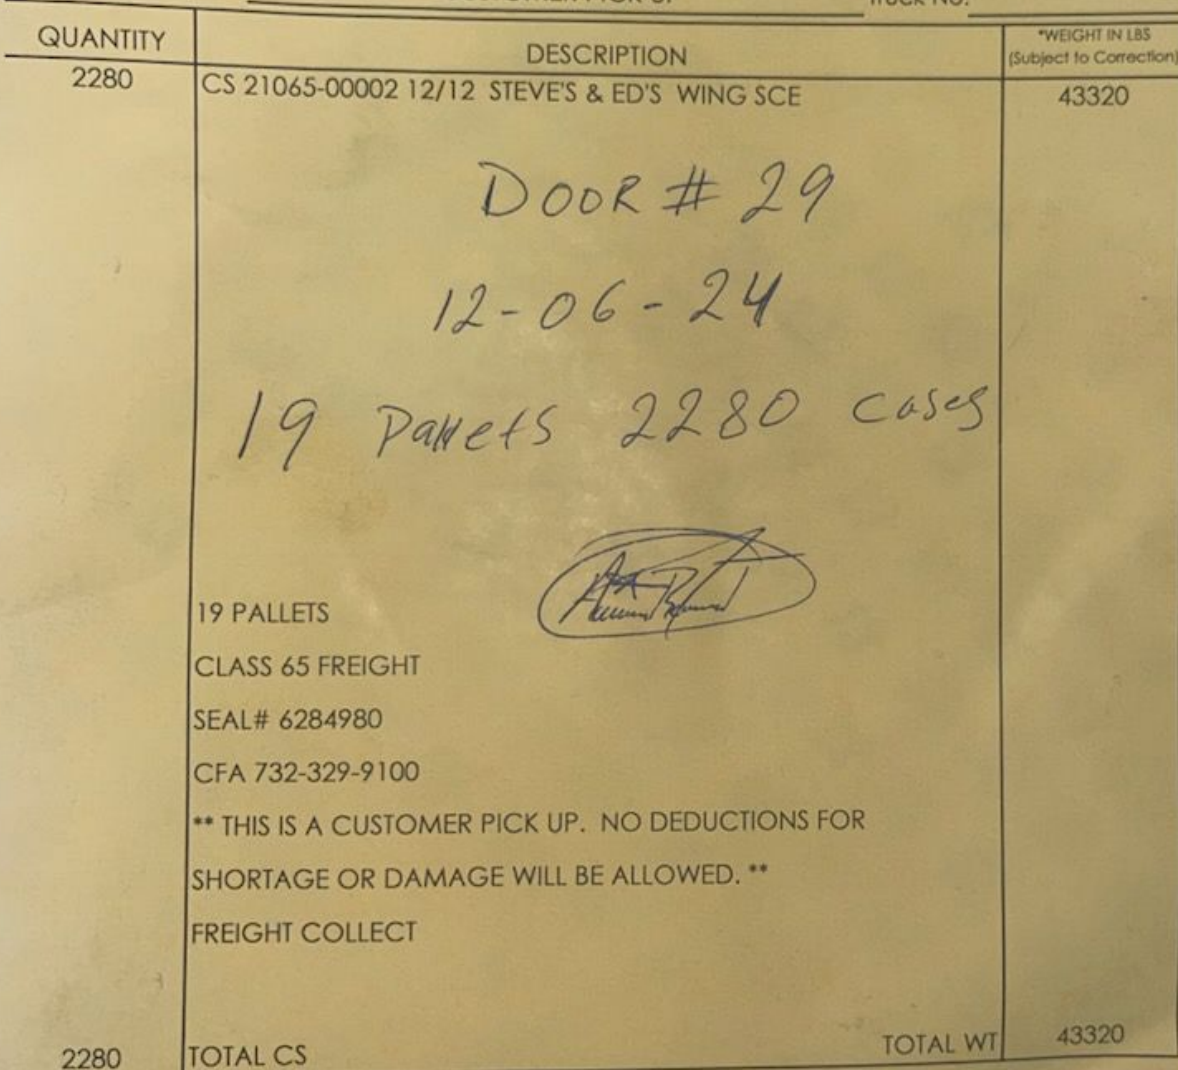 TRUCK NO.
QUANTITY DESCRIPTION *WEIGHT IN LBS
(Subject to Correction)
2280 CS 21065-00002 12/12 STEVE'S & ED'S WING SCE 43320
DOOR # 29
12-06-24
19 Pallets 2280 cases
19 PALLETS
CLASS 65 FREIGHT
SEAL# 6284980
CFA 732-329-9100
** THIS IS A CUSTOMER PICK UP. NO DEDUCTIONS FOR
SHORTAGE OR DAMAGE WILL BE ALLOWED. **
FREIGHT COLLECT
2280 TOTAL CS TOTAL WT 43320